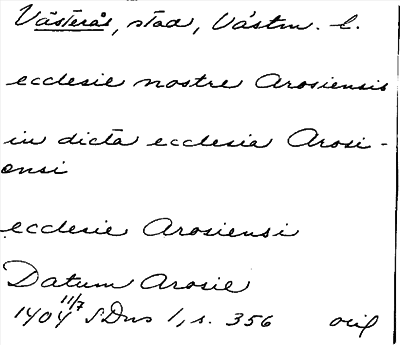 Västerås, stad, Västm. l.
ecclesie nostre Arosiensis
in dicta ecclesia Arosi-
ensi
ecclesie Arosiensi
Datum Arosie
1404 11/7 SDns 1, s. 356